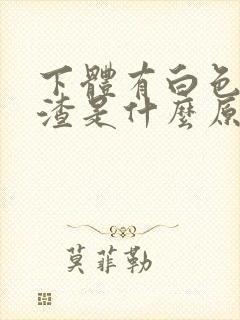 下體有白色
渣是什麼原
莫菲勒